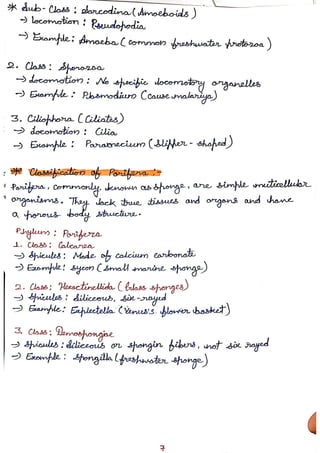 * Sub-Class: Sarcodina (Amoeboids)
→ Locomotion: Pseudopodia
→ Example: Amoeba (common freshwater protozoa)
2. Class: Sporozoa
→ Locomotion: No specific locomotory organelles
→ Example: Plasmodium (cause malariya)
3. Ciliophora (Ciliates)
→ Locomotion: Cilia
→ Example: Paramecium (Slipper-shaped)
* Classification of Porifera :-
Porifera, commonly known as sponge, are simple multicellular
organisms. They lack true tissues and organs and have
a porous body structure.
Phylum: Porifera
1. Class: Calcarea
→ Spicules: Made of calcium carbonate
→ Example: Sycon (small marine sponge)
2. Class: Hexactinellida (Glass sponges)
→ Spicules: Siliceous, six-rayed
→ Example: Euplectella (Venus's flower basket)
3. Class: Demospongiae
→ Spicules: Siliceous or spongin fibers, not six rayed
→ Example: Spongilla (freshwater sponge)
7